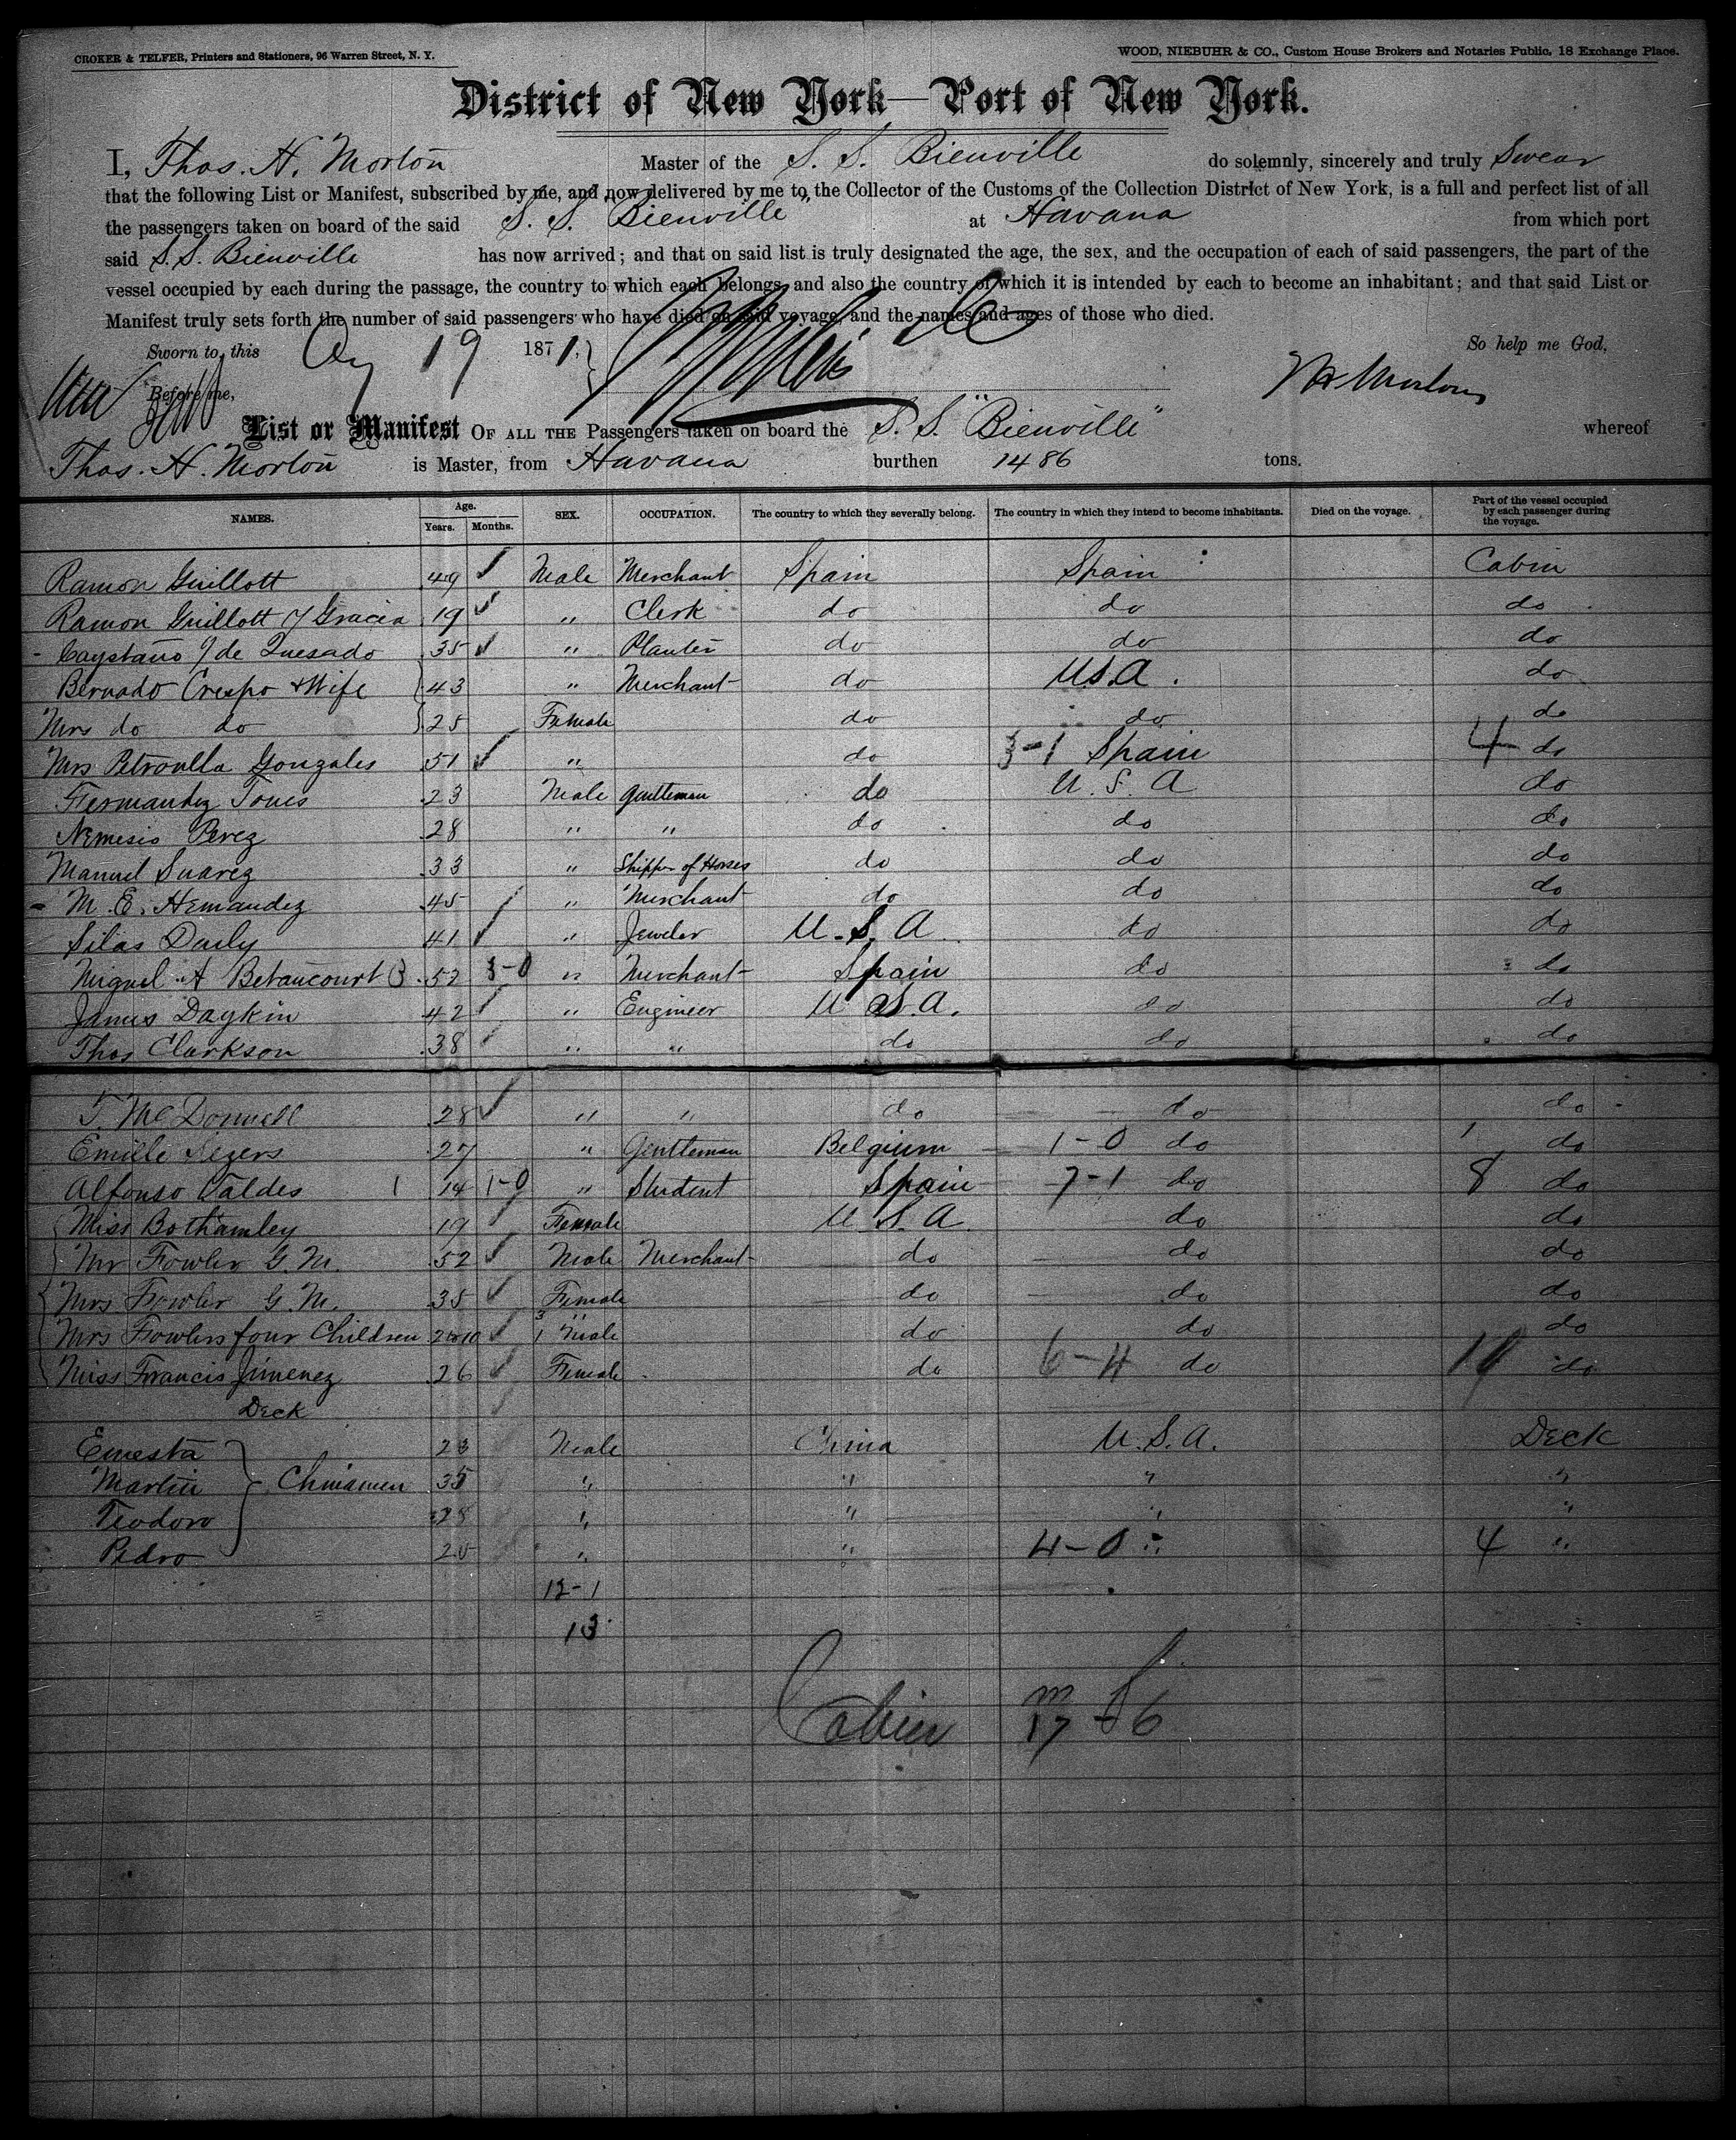 CROKER & TELFER, Printers and Stationers, 96 Warren Street, N. Y.
WOOD, NIEBUHR & CO., Custom House Brokers and Notaries Public, 18 Exchange Place.
District of New York—Port of New York.
I, Thos. N. Morton Master of the S. S. Bienville do solemnly, sincerely and truly Swear
that the following List or Manifest, subscribed by me, and now delivered by me to the Collector of the Customs of the Collection District of New York, is a full and perfect list of all
the passengers taken on board of the said S. S. "Bienville" at Havana from which port
said S.S. Bienville has now arrived; and that on said list is truly designated the age, the sex, and the occupation of each of said passengers, the part of the
vessel occupied by each during the passage, the country to which each belongs, and also the country of which it is intended by each to become an inhabitant; and that said List or
Manifest truly sets forth the number of said passengers who have died on said voyage, and the names and ages of those who died.
Sworn to, this Aug 19 1871, So help me God,
Before me,
List or Manifest OF ALL THE Passengers taken on board the S. S. "Bienville" whereof
Thos. N. Morton is Master, from Havana burthen 1486 tons.
NAMES. Age. Years. Months. SEX. OCCUPATION. The country to which they severally belong. The country in which they intend to become inhabitants. Died on the voyage. Part of the vessel occupied by each passenger during the voyage.
Ramon Guillott 49 Male Merchant Spain Spain Cabin
Ramon Guillott y Gracia 19 " Clerk do do do
Caystano y de Quesado 35 " Planter do do do
Bernado Crespo & Wife 43 " Merchant do U.S.A. do
Mrs do do 25 Female do do do
Mrs Petronlla Gonzales 51 " do 3-1 Spain 4 do
Fernandez Tones 23 Male Gentleman do U. S. A do
Nemesis Perez 28 " " do do do
Manuel Suarez 33 " Shipper of Horses do do do
M. E. Hernandez 45 " Merchant do do do
Silas Daily 41 " Jeweler U. S. A. do do
Miguel A Betancourt 3 52 3-0 " Merchant Spain do do
James Daykin 42 " Engineer U. S. A. do do
Thos Clarkson 38 " " do do do
T. McDonnell 28 " " do do do
Emille Segers 27 " Gentleman Belgium 1-0 do 1 do
Alfonso Valdes 1 14 1-0 " Student Spain 7-1 do 8 do
Miss Bothamley 19 Female U. S. A. do do
Mr Fowler G. M. 52 Male Merchant do do do
Mrs Fowler G. M. 35 Female do do do
Mrs Fowlers four Children 2 to 10 3 " 1 Male do do do
Miss Francis Jimenez 26 Female do 6-4 do do
Deck
Ernesta 23 Male China U.S.A. Deck
Martin Chinamen 35 " " " "
Teodoro 28 " " " "
Pedro 25 " " 4-0 " 4 "
12-1
13
Cabin m 17 - f 6